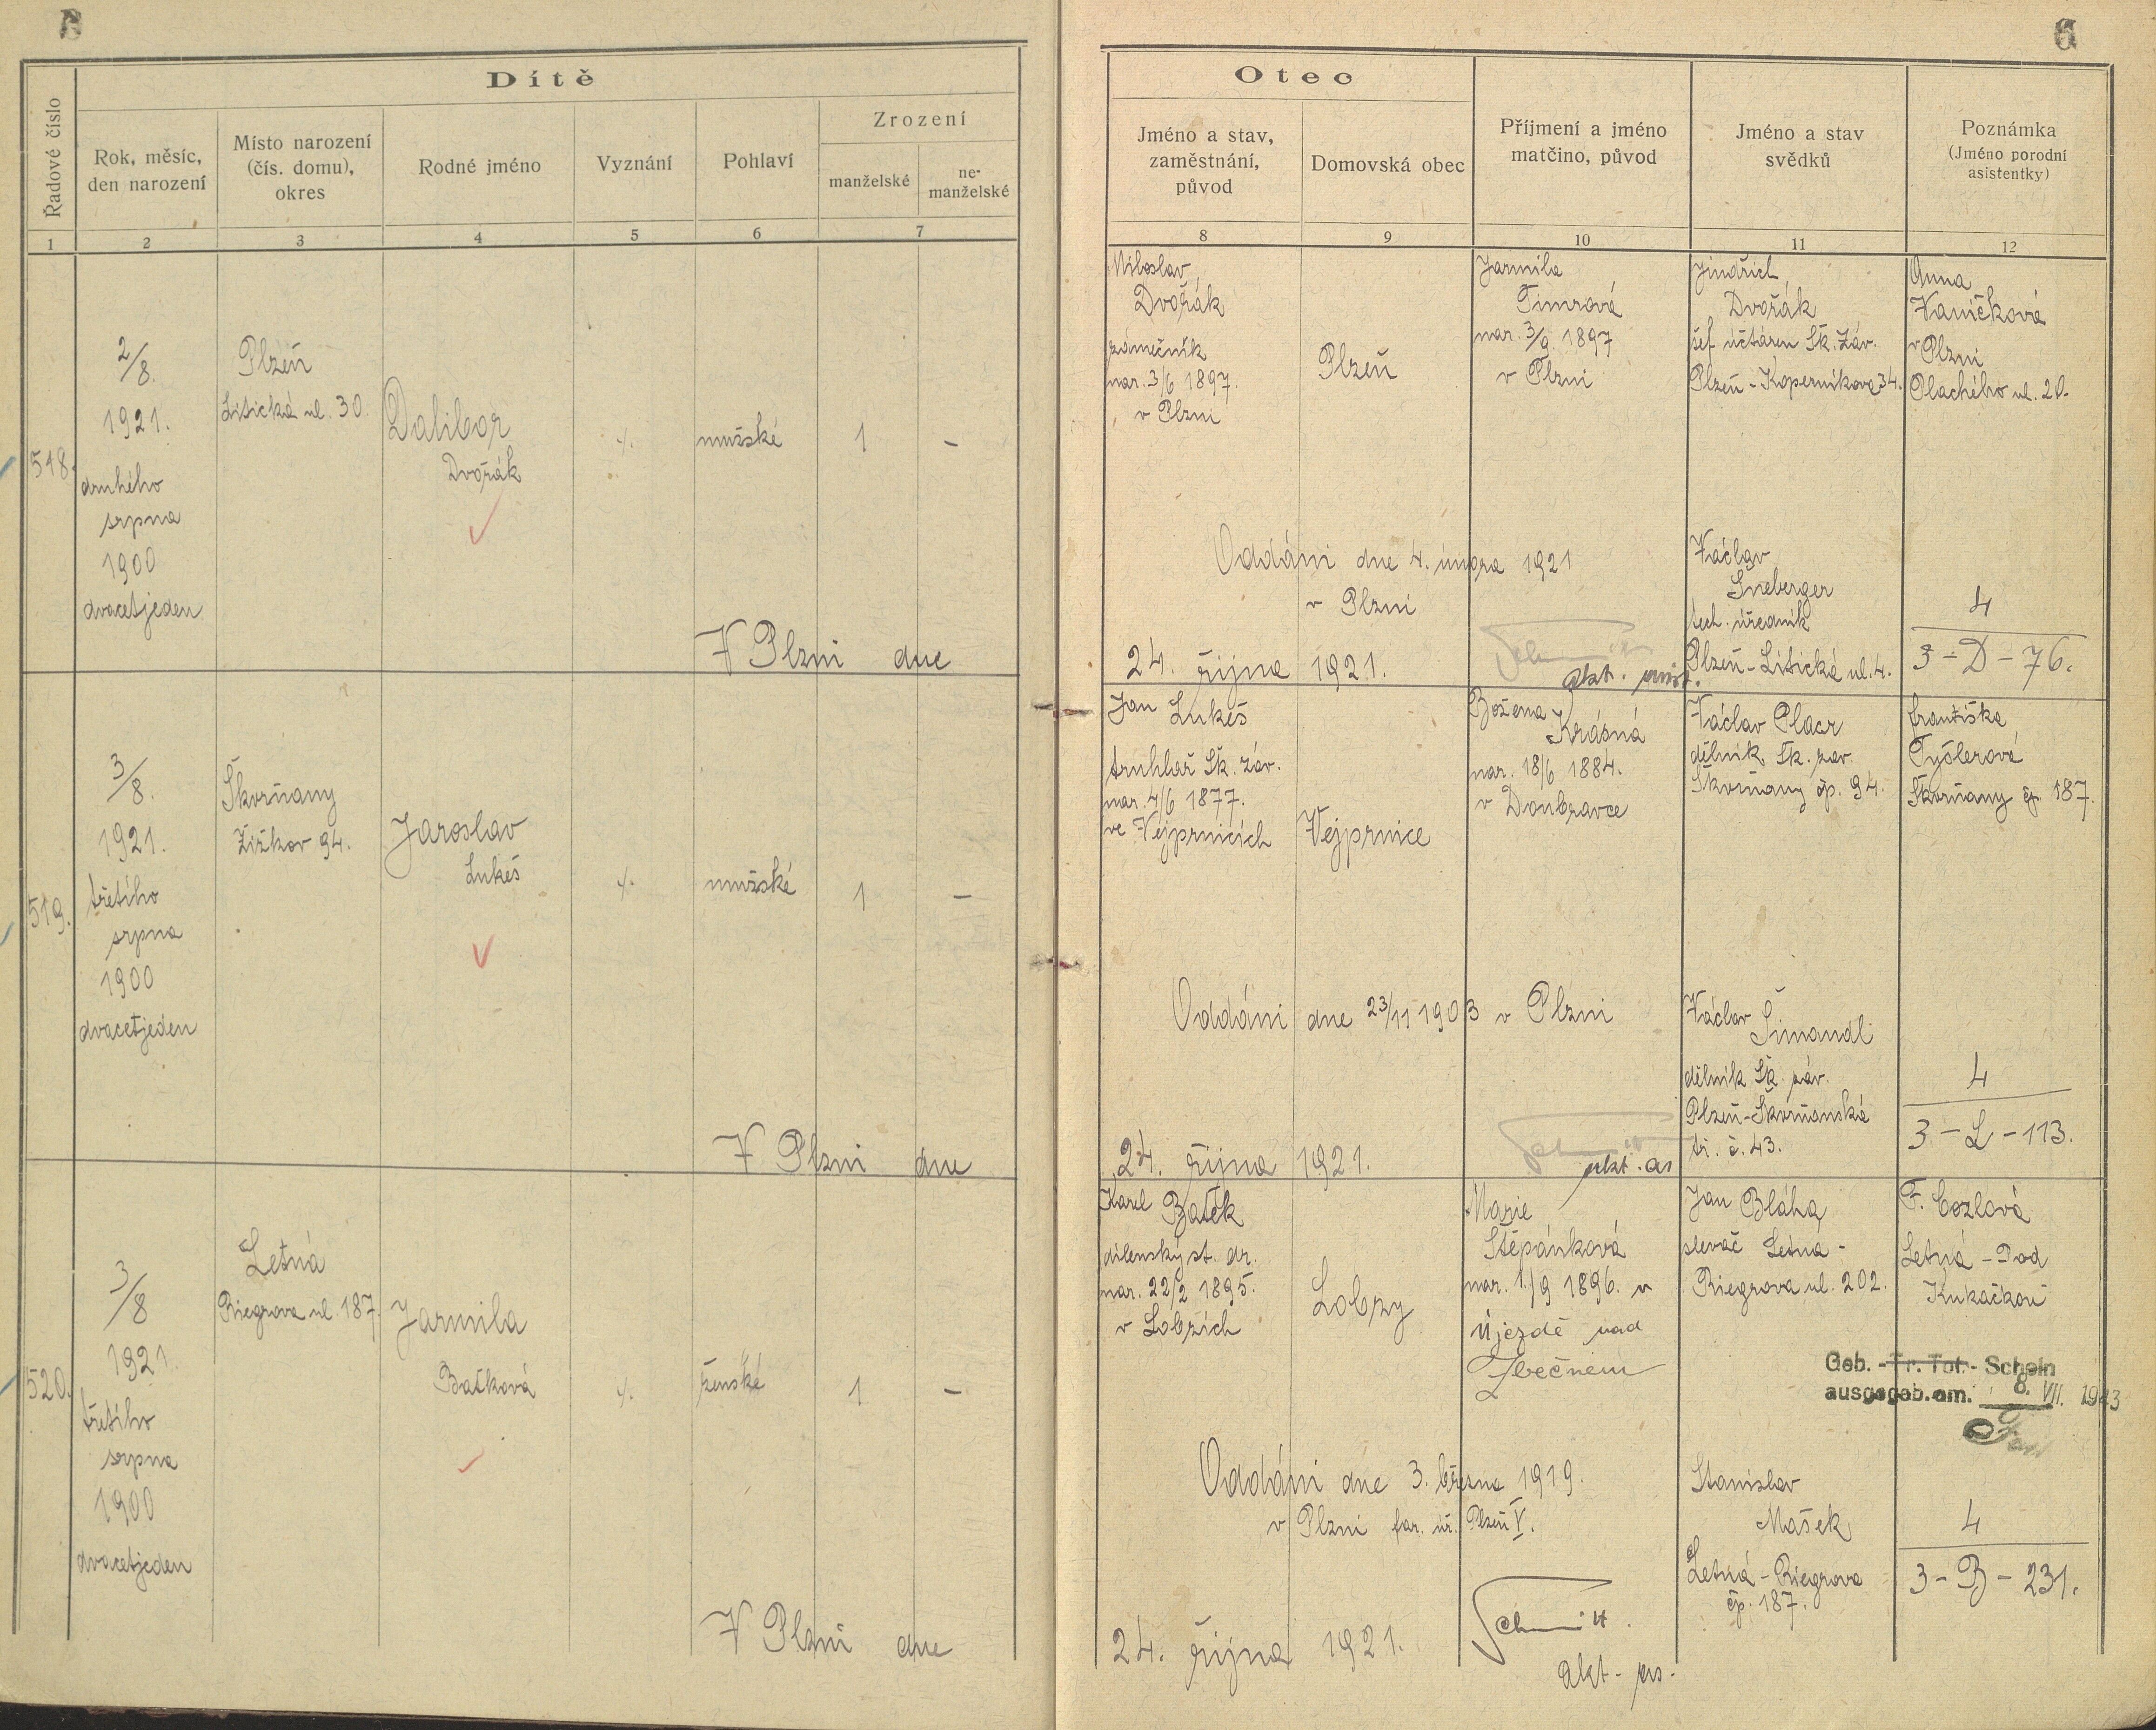 6
Dítě
Řadové číslo
Rok, měsíc,
den narození
Místo narození
(čís. domu),
okres
Rodné jméno
Vyznání
Pohlaví
Zrození
manželské
ne-
manželské
1
2
3
4
5
6
7
518.
2/8.
1921.
druhého
srpna
1900
dvacetjeden
Plzeň
Litická ul. 30.
Dalibor
Dvořák
mužské
1
–
V Plzni dne
519.
3/8.
1921.
třetího
srpna
1900
dvacetjeden
Škvrňany
Žižkov 94.
Jaroslav
Lukeš
mužské
1
–
V Plzni dne
520.
3/8
1921.
třetího
srpna
1900
dvacetjeden
Letná
Riegrova ul. 187.
Jarmila
Baťková
ženské
1
–
V Plzni dne
Otec
Jméno a stav,
zaměstnání,
původ
Domovská obec
Příjmení a jméno
matčino, původ
Jméno a stav
svědků
Poznámka
(Jméno porodní
asistentky)
8
9
10
11
12
Miloslav
Dvořák
zámečník
nar. 3/6 1897.
v Plzni
Plzeň
Jarmila
Timrová
nar. 3/9. 1897
v Plzni
Jindřich
Dvořák
šéf účtáren Šk. Záv.
Plzeň - Koperníkova 34.
Anna
Vaníčková
v Plzni
Plachého ul. 20.
Oddáni dne 4. února 1921
v Plzni
Václav
Šneberger
tech. úředník
Plzeň - Litická ul. 4.
4
3 - D - 76.
24. října 1921.
Jan Lukeš
truhlař Šk. záv.
nar. 4/6 1877.
ve Vejprnicích
Vejprnice
Božena
Krásná
nar. 18/6 1884.
v Doubravce
Václav Placr
dělník Šk. zav.
Škvrňany čp. 94.
Františka
Tyšlerová
Škvrňany čp. 187.
Oddáni dne 23/11 1903 v Plzni
Václav
Šimandl
dělník Šk. záv.
Plzeň-Škvrňanská
tř. č. 43.
4
3 - L - 113.
24. října 1921.
Karel Batěk
dílenský st. dr.
nar. 22/2 1895.
v Lobzích
Lobzy
Marie
Štěpánková
nar. 1./9 1896. v
Újezdě nad
Zbečnem
Jan Bláha
slevač Letná -
Riegrova ul. 202.
F. Cozlová
Letná - Pod
Kukačkou
Geb. - Tr. Tot. - Schein
ausgegeb. am. 8. VII. 1943
Oddáni dne 3. března 1919.
v Plzni far. úř. Plzeň V.
Stanislav
Mašek
Letná - Riegrova
čp. 187.
4
3 - B - 231.
24. října 1921.
Schmitt.